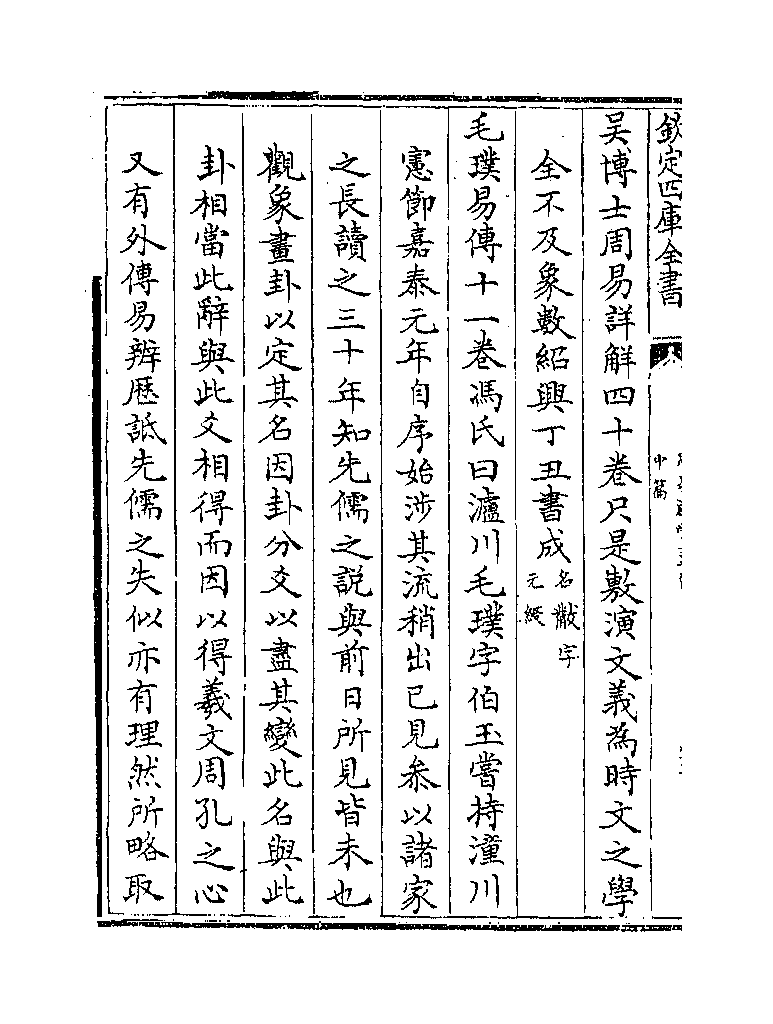 欽定四庫全書
吴博士周易詳解四十卷只是敷演文義為時文之學
全不及象數紹興丁丑書成名黻字元綬
毛璞易傳十一卷馮氏曰瀘川毛璞字伯玉嘗持潼川
憲節嘉泰元年自序始涉其流稍出已見叅以諸家
之長讀之三十年知先儒之説與前日所見皆未也
觀象畫卦以定其名因卦分爻以盡其變此名與此
卦相當此辭與此爻相得而因以得羲文周孔之心
又有外傳易辨歴詆先儒之失似亦有理然所略取
中篇